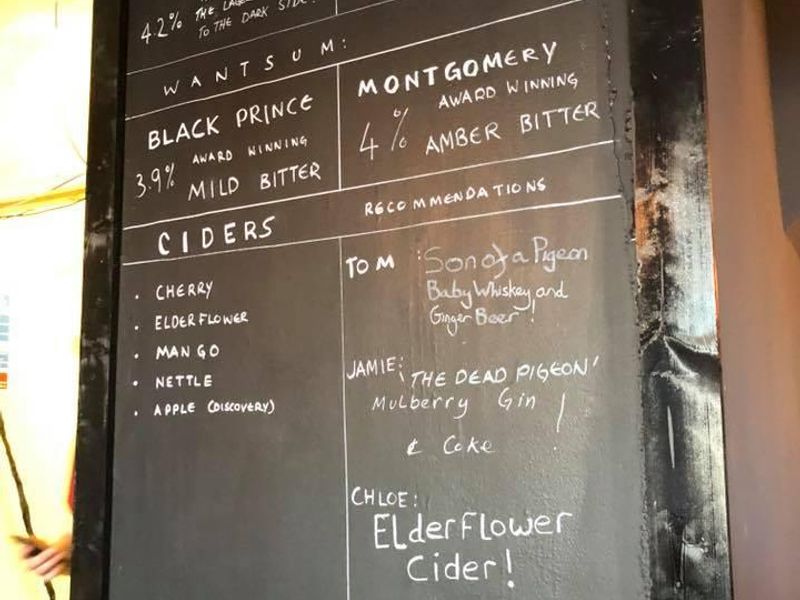 4.2% THE
TO THE DARK SIDE
WANTSUM:
BLACK PRINCE
3.9% AWARD WINNING
MILD BITTER
MONTGOMERY
AWARD WINNING
4% AMBER BITTER
CIDERS
• CHERRY
• ELDERFLOWER
• MANGO
• NETTLE
• APPLE (DISCOVERY)
RECOMMENDATIONS
TOM : Son of a Pigeon
Baby Whiskey and
Ginger Beer!
JAMIE: 'THE DEAD PIGEON'
Mulberry Gin
& Coke!
CHLOE:
ElderFlower
Cider!